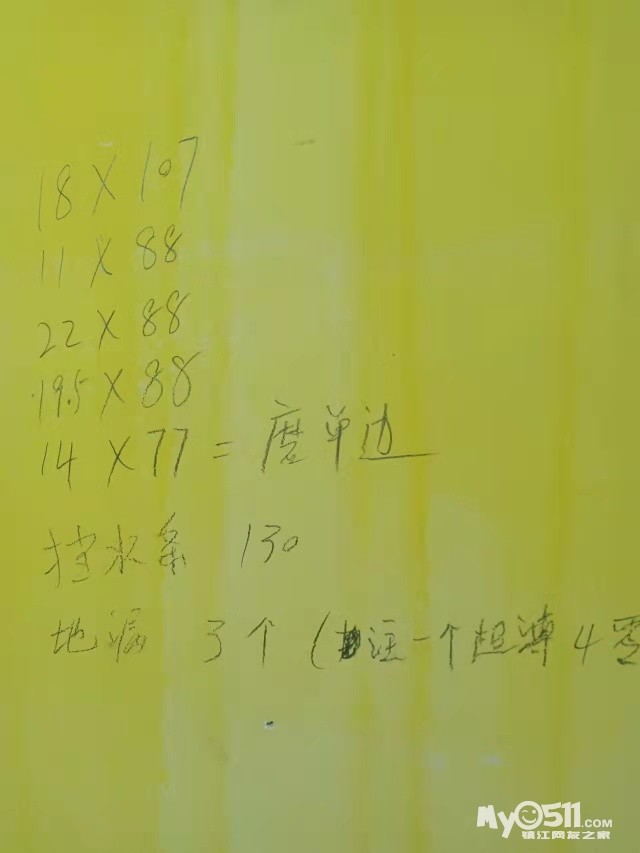 18 X 107
11 X 88
22 X 88
19.5 X 88
14 X 77 = 磨单边
挡水条 130
地漏 3个 (注一个超薄4零
My0511.com
镇江网友之家